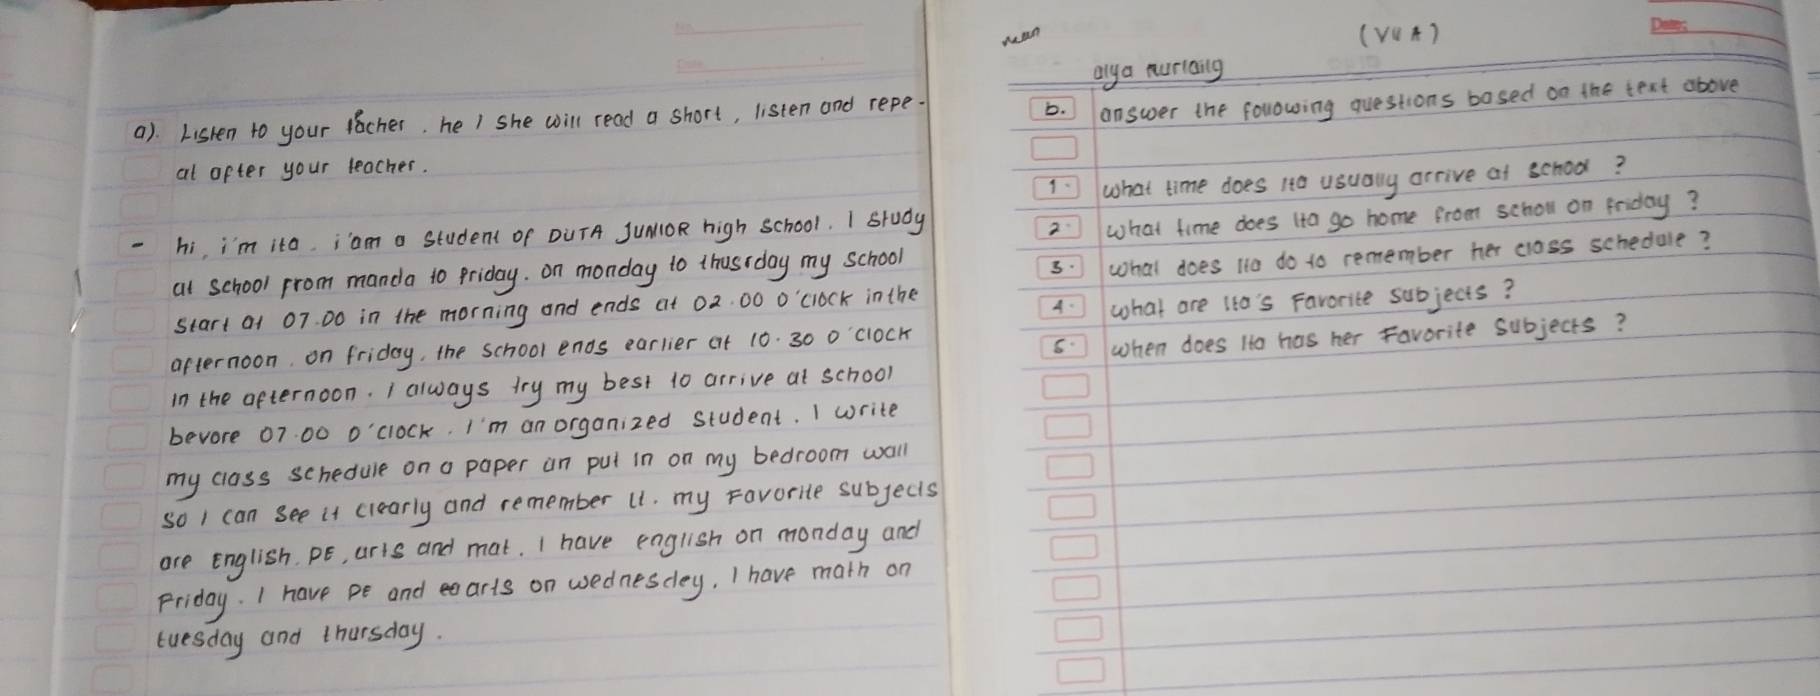 a). Listen to your tacher. he / she will read a short, listen and repe-
at after your teacher.
- hi, i'm ita. i'am a student of DUTA JUNIOR high school. I study
at school from manda to friday. on monday to thusrday my school
start at 07.00 in the morning and ends at 02.00 o'clock in the
afternoon. on friday, the school ends earlier at 10.30 o'clock
in the afternoon. I always try my best to arrive at school
bevore 07.00 o'clock. I'm an organized student. I write
my class schedule on a paper an put in on my bedroom wall
so I can see it clearly and remember it. my Favorite subjects
are English, PE, arts and mat. I have english on monday and
Friday. I have PE and arts on wednesdey, I have math on
tuesday and thursday.
No.
Date.
(VII A)
Date:
alya
b. answer the following questions based on the text above
1. what time does ita usually arrive at school ?
2. what time does ita go home from scholl on friday ?
3. what does ita do to remember her class schedule ?
4. what are ita's Favorite subjects ?
5. when does ita has her Favorite subjects ?